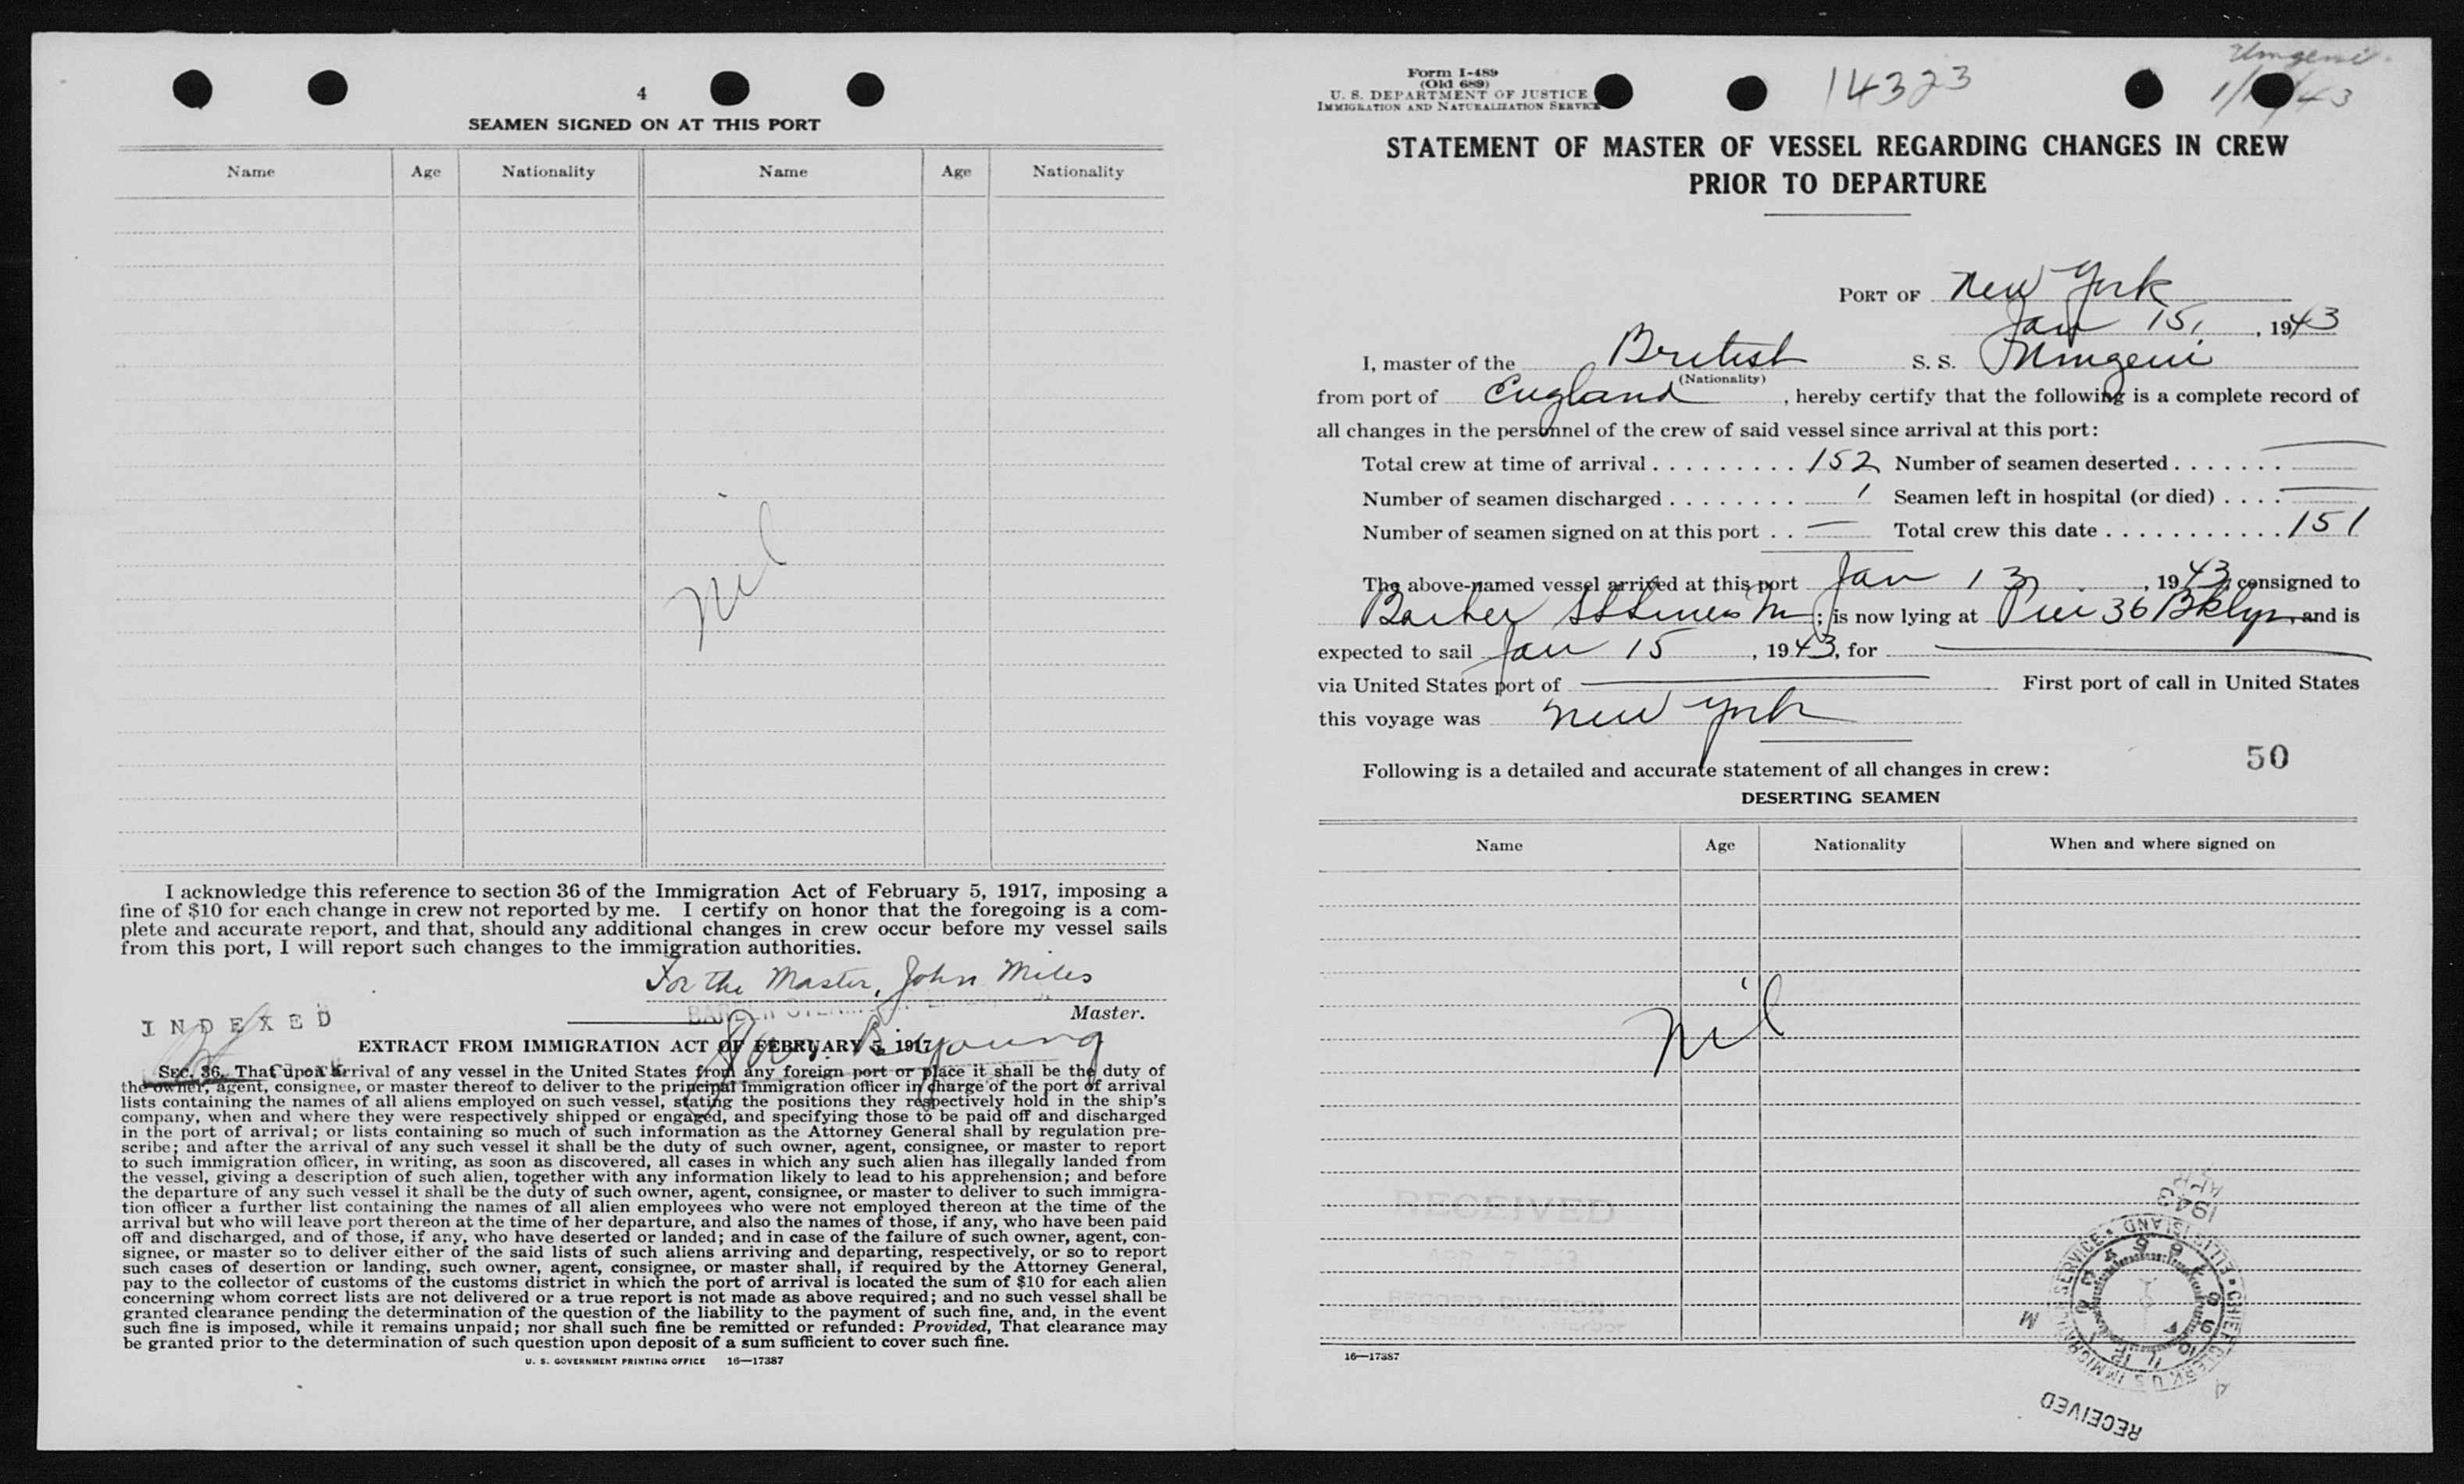 4
SEAMEN SIGNED ON AT THIS PORT
Name Age Nationality Name Age Nationality
Nil
I acknowledge this reference to section 36 of the Immigration Act of February 5, 1917, imposing a
fine of $10 for each change in crew not reported by me. I certify on honor that the foregoing is a com-
plete and accurate report, and that, should any additional changes in crew occur before my vessel sails
from this port, I will report such changes to the immigration authorities.
For the Master, John Miles
Master.
INDEXED
EXTRACT FROM IMMIGRATION ACT OF FEBRUARY 5, 1917
SEC. 36. That upon arrival of any vessel in the United States from any foreign port or place it shall be the duty of
the owner, agent, consignee, or master thereof to deliver to the principal immigration officer in charge of the port of arrival
lists containing the names of all aliens employed on such vessel, stating the positions they respectively hold in the ship's
company, when and where they were respectively shipped or engaged, and specifying those to be paid off and discharged
in the port of arrival; or lists containing so much of such information as the Attorney General shall by regulation pre-
scribe; and after the arrival of any such vessel it shall be the duty of such owner, agent, consignee, or master to report
to such immigration officer, in writing, as soon as discovered, all cases in which any such alien has illegally landed from
the vessel, giving a description of such alien, together with any information likely to lead to his apprehension; and before
the departure of any such vessel it shall be the duty of such owner, agent, consignee, or master to deliver to such immigra-
tion officer a further list containing the names of all alien employees who were not employed thereon at the time of the
arrival but who will leave port thereon at the time of her departure, and also the names of those, if any, who have been paid
off and discharged, and of those, if any, who have deserted or landed; and in case of the failure of such owner, agent, con-
signee, or master so to deliver either of the said lists of such aliens arriving and departing, respectively, or so to report
such cases of desertion or landing, such owner, agent, consignee, or master shall, if required by the Attorney General,
pay to the collector of customs of the customs district in which the port of arrival is located the sum of $10 for each alien
concerning whom correct lists are not delivered or a true report is not made as above required; and no such vessel shall be
granted clearance pending the determination of the question of the liability to the payment of such fine, and, in the event
such fine is imposed, while it remains unpaid; nor shall such fine be remitted or refunded: Provided, That clearance may
be granted prior to the determination of such question upon deposit of a sum sufficient to cover such fine.
U. S. GOVERNMENT PRINTING OFFICE 16—17387
Form I-489
(Old 689)
U. S. DEPARTMENT OF JUSTICE
IMMIGRATION AND NATURALIZATION SERVICE
14323
Umgeni
STATEMENT OF MASTER OF VESSEL REGARDING CHANGES IN CREW
PRIOR TO DEPARTURE
PORT OF New York
Jan 15, , 1943
I, master of the British S. S. Umgeni
(Nationality)
from port of England , hereby certify that the following is a complete record of
all changes in the personnel of the crew of said vessel since arrival at this port:
Total crew at time of arrival . . . . . . . . . 152 Number of seamen deserted . . . . . . . —
Number of seamen discharged . . . . . . . . 1 Seamen left in hospital (or died) . . . . —
Number of seamen signed on at this port . . — Total crew this date . . . . . . . . . . . 151
The above-named vessel arrived at this port Jan 13 , 1943, consigned to
Barber SS Lines ; is now lying at Pier 36 Bklyn, and is
expected to sail Jan 15 , 1943, for —
via United States port of — First port of call in United States
this voyage was New York
50
Following is a detailed and accurate statement of all changes in crew:
DESERTING SEAMEN
Name Age Nationality When and where signed on
Nil
RECEIVED
RECORD DIVISION
APR
1943
CHIEF CLERK U S IMMIGRATION SERVICE • ELLIS ISLAND
RECEIVED
16—17387